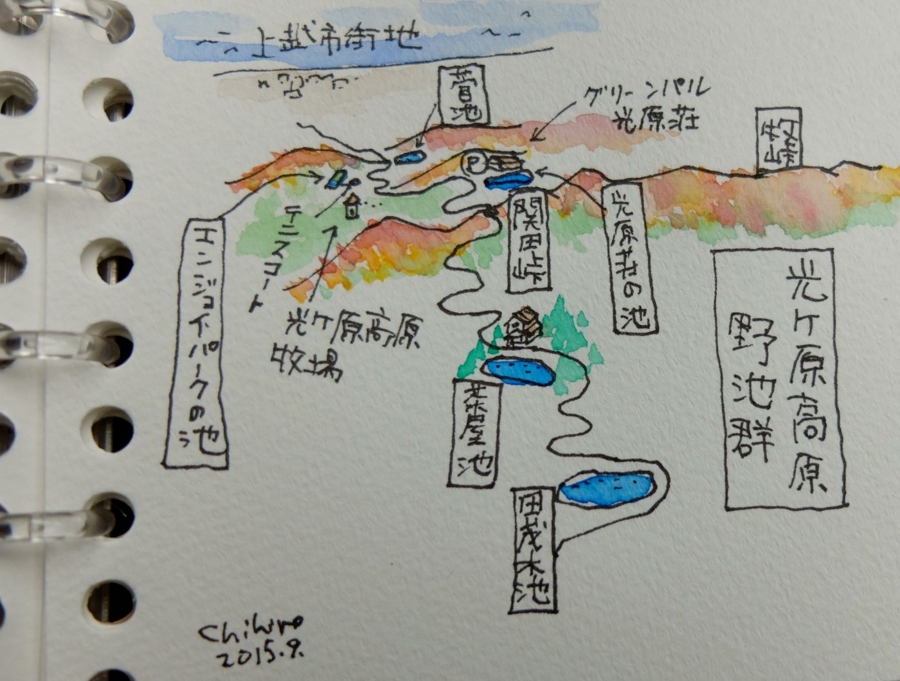 上越市街地
菅池
グリーンパル
光原荘
牧峠
P
エンジョイパークの池
テニスコート
光ケ原高原
牧場
関田峠
光原荘の池
茶屋池
田茂木池
光ケ原高原
野池群
Chihiro
2015.9.